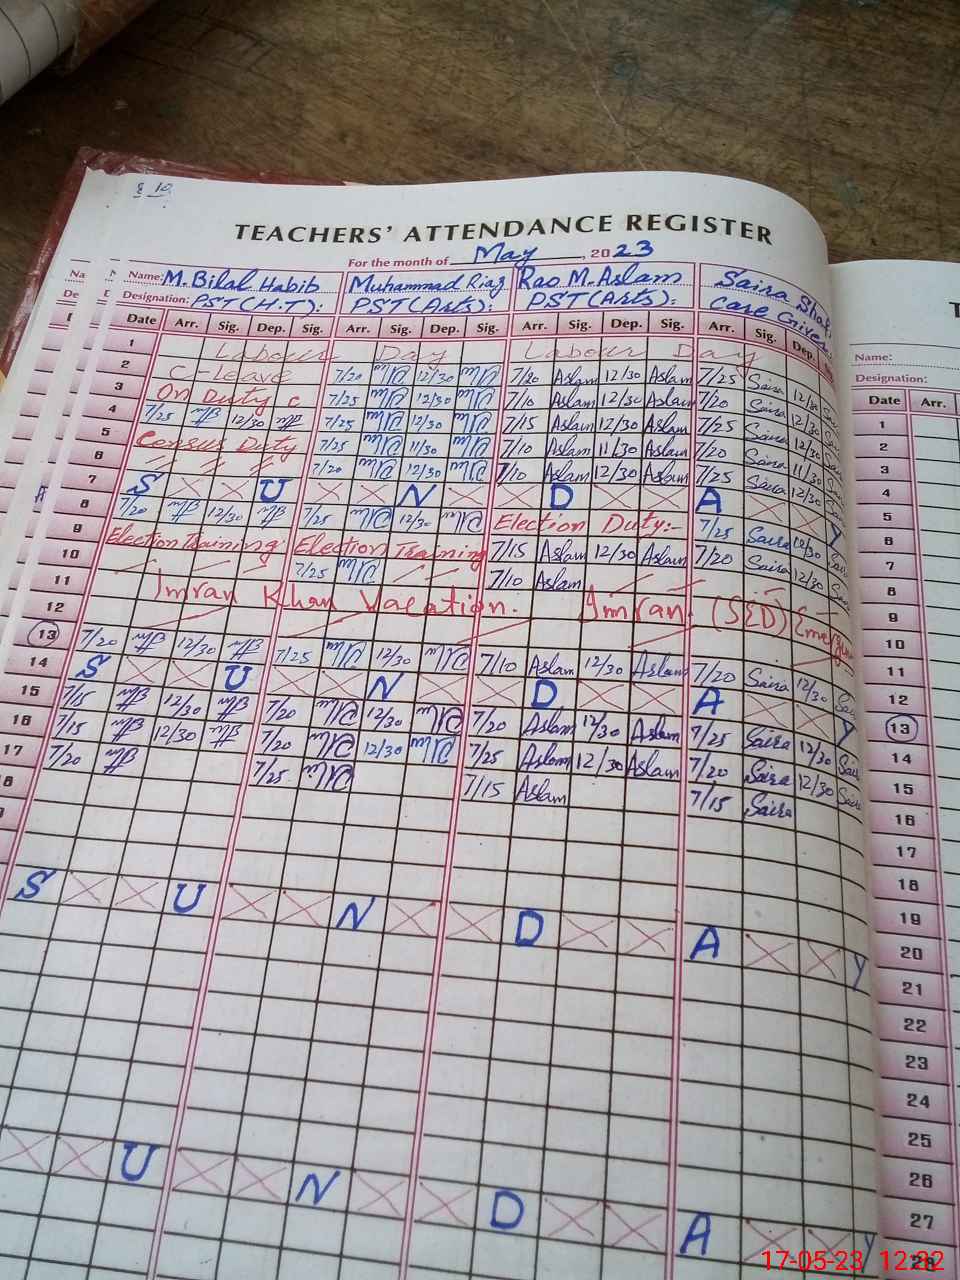 TEACHERS' ATTENDANCE REGISTER
For the month of May, 2023
Name: M. Bilal Habib Muhammad Riaz Rao M. Aslam Saira
Designation: PST (H.T): PST (Arts): PST (Arts): Care Giver
Date Arr. Sig. Dep. Sig. Arr. Sig. Dep. Sig. Arr. Sig. Dep. Sig. Arr. Sig. Dep.
1 Labour Day Labour Day
2 C-Leave 7/20 12/30 7/20 Aslam 12/30 Aslam 7/25 Saira 12/30
3 On Duty C 7/25 12/30 7/10 Aslam 12/30 Aslam 7/20 Saira 12/30
4 7/25 12/30 7/25 12/30 7/15 Aslam 12/30 Aslam 7/25 Saira 12/30
5 Census Duty 7/25 11/30 7/10 Aslam 11/30 Aslam 7/20 Saira 11/30
6 〃 〃 〃 7/20 12/30 7/10 Aslam 12/30 Aslam 7/25 Saira 12/30
7 S U N D A Y
8 7/20 12/30 7/25 12/30 Election Duty:- 7/25 Saira 12/30
9 Election Training Election Training 7/15 Aslam 12/30 Aslam 7/20 Saira 12/30
10 7/25 7/10 Aslam
11 Imran Khan Vacation. Imran. (SED)
12
13 7/20 12/30 7/25 12/30 7/10 Aslam 12/30 Aslam 7/20 Saira 12/30
14 S U N D A Y
15 7/15 12/30 7/20 12/30 7/20 Aslam 12/30 Aslam 7/25 Saira 12/30
16 7/15 12/30 7/20 12/30 7/25 Aslam 12/30 Aslam 7/20 Saira 12/30
17 7/20 7/25 7/15 Aslam 7/15 Saira
S U N D A Y
U N D A Y
Name:
Designation:
Date Arr.
1
2
3
4
5
6
7
8
9
10
11
12
13
14
15
16
17
18
19
20
21
22
23
24
25
26
27
28
17-05-23 12:32